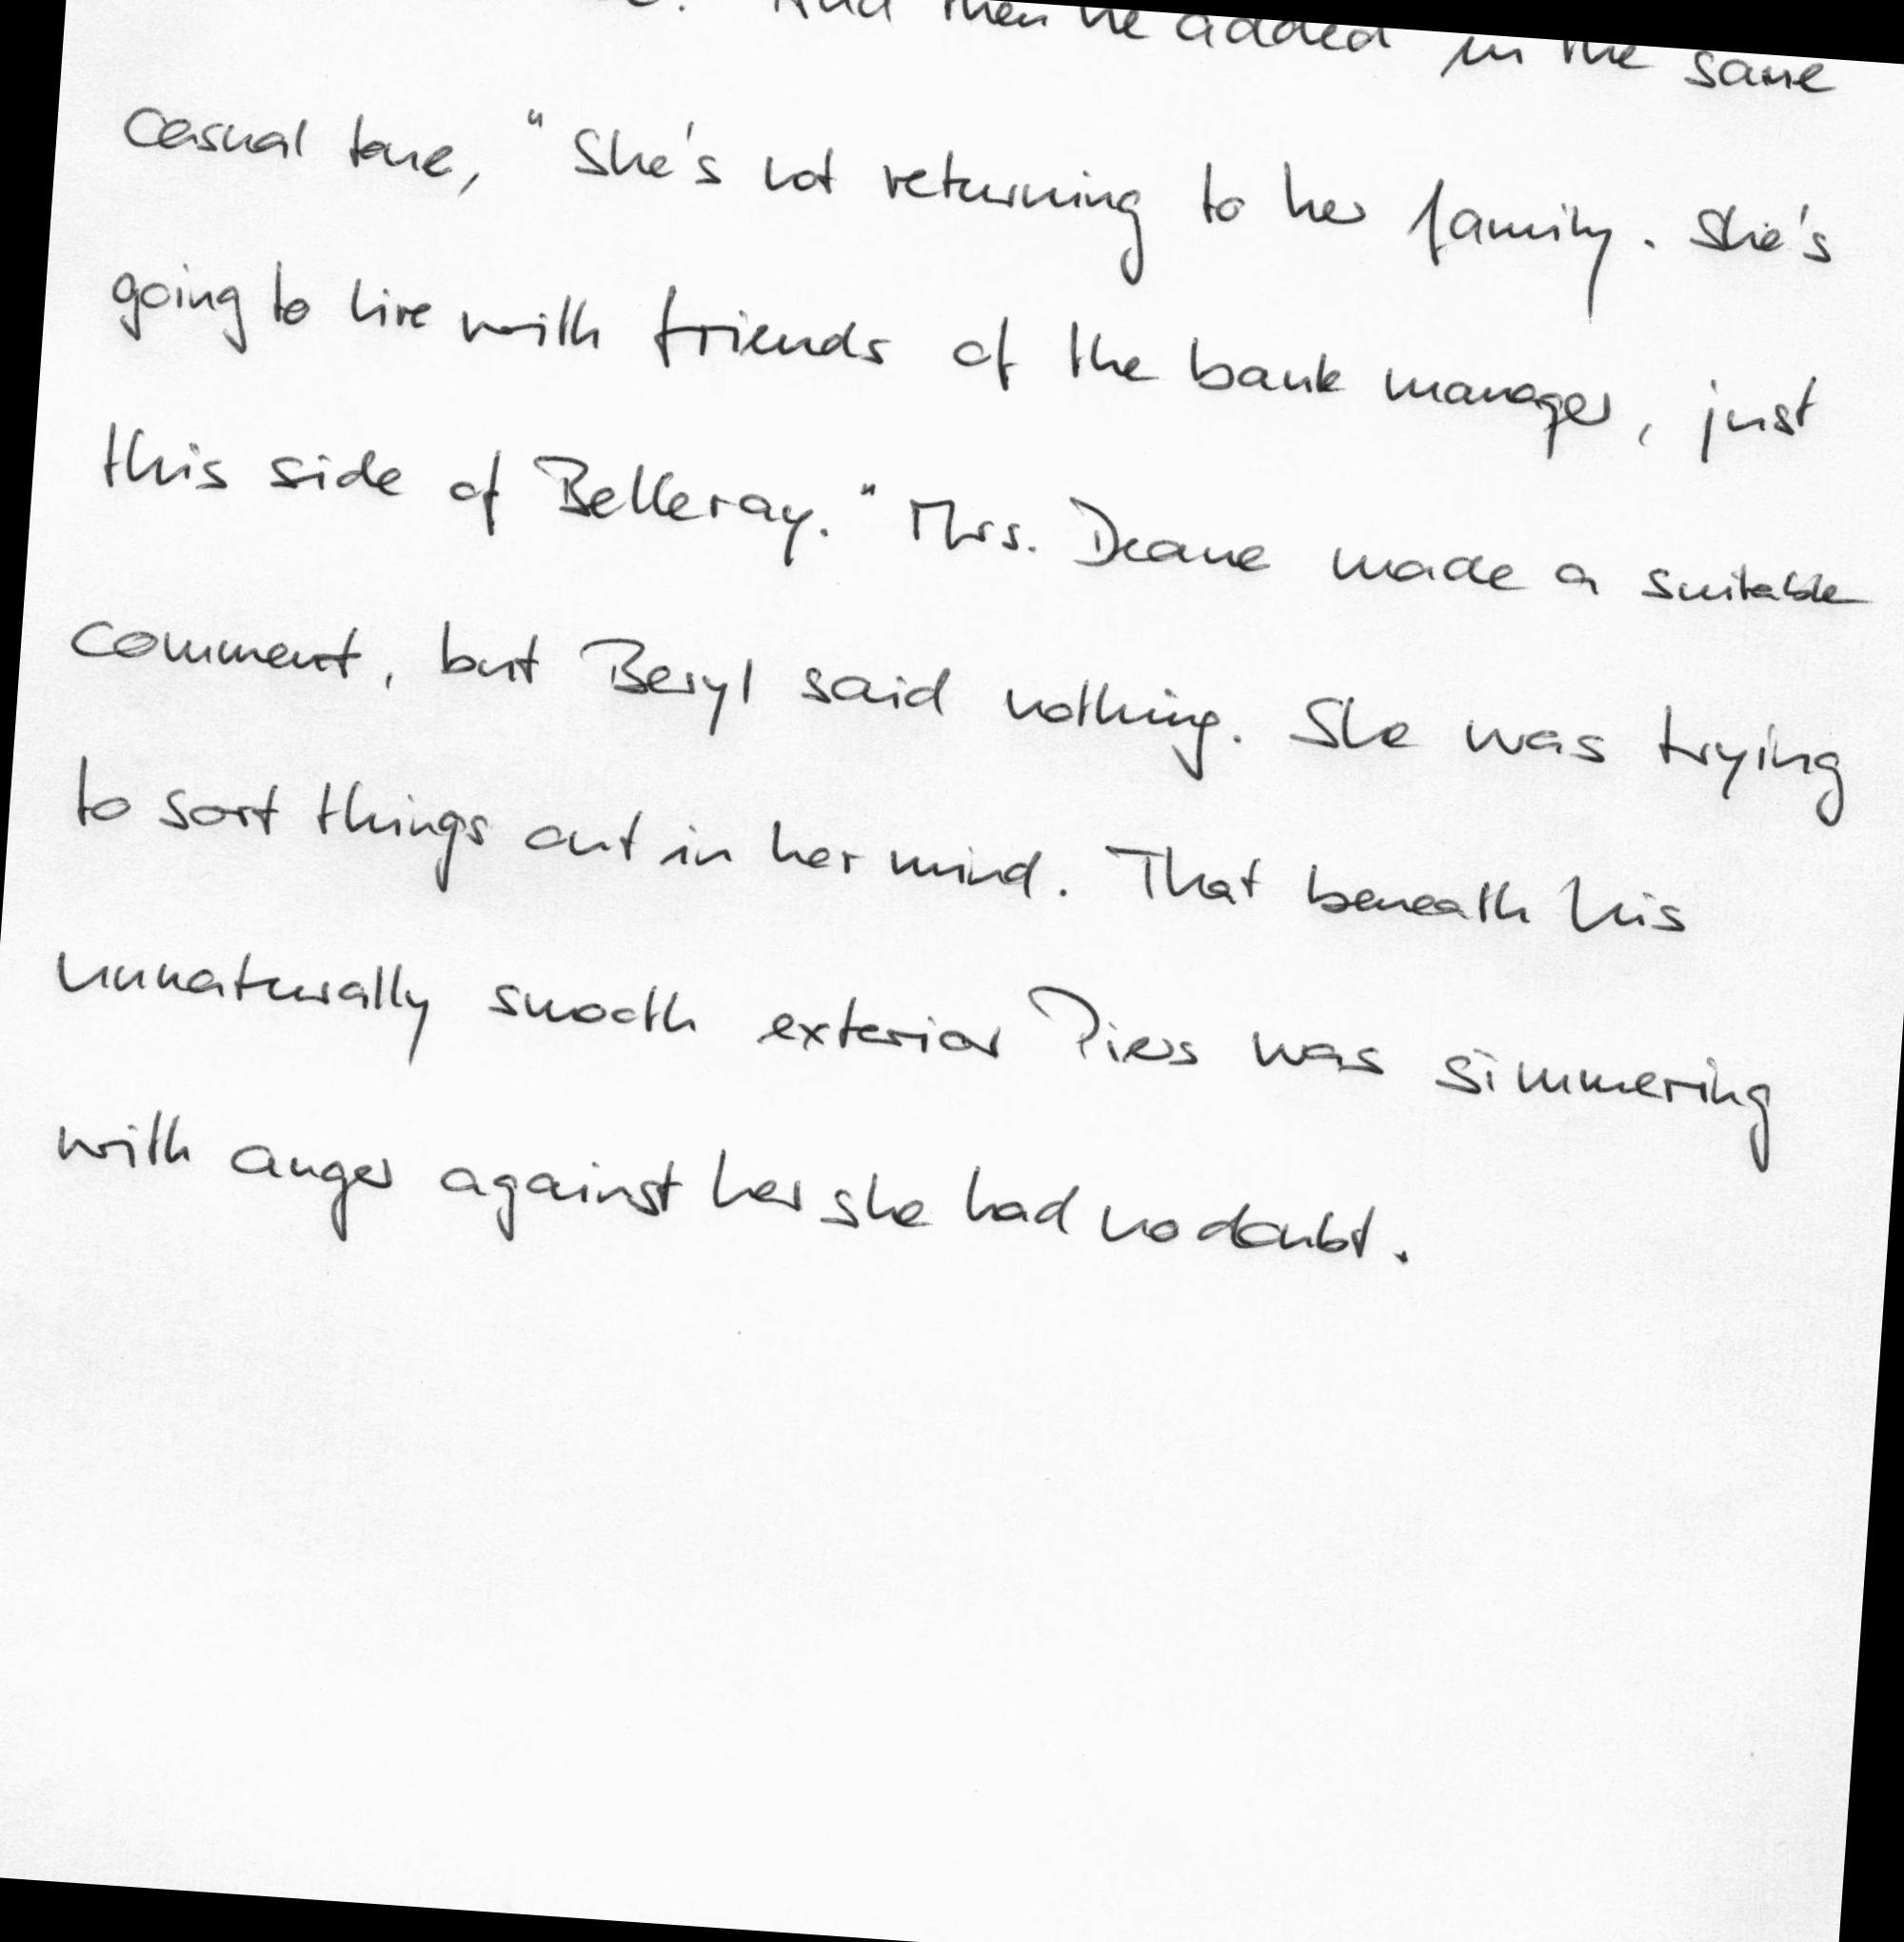 And then he added in the same
casual tone, "She's not returning to her family. She's
going to live with friends of the bank manager, just
this side of Belleray." Mrs. Deane made a suitable
comment, but Beryl said nothing. She was trying
to sort things out in her mind. That beneath his
unnaturally smooth exterior Piers was simmering
with anger against her she had no doubt.